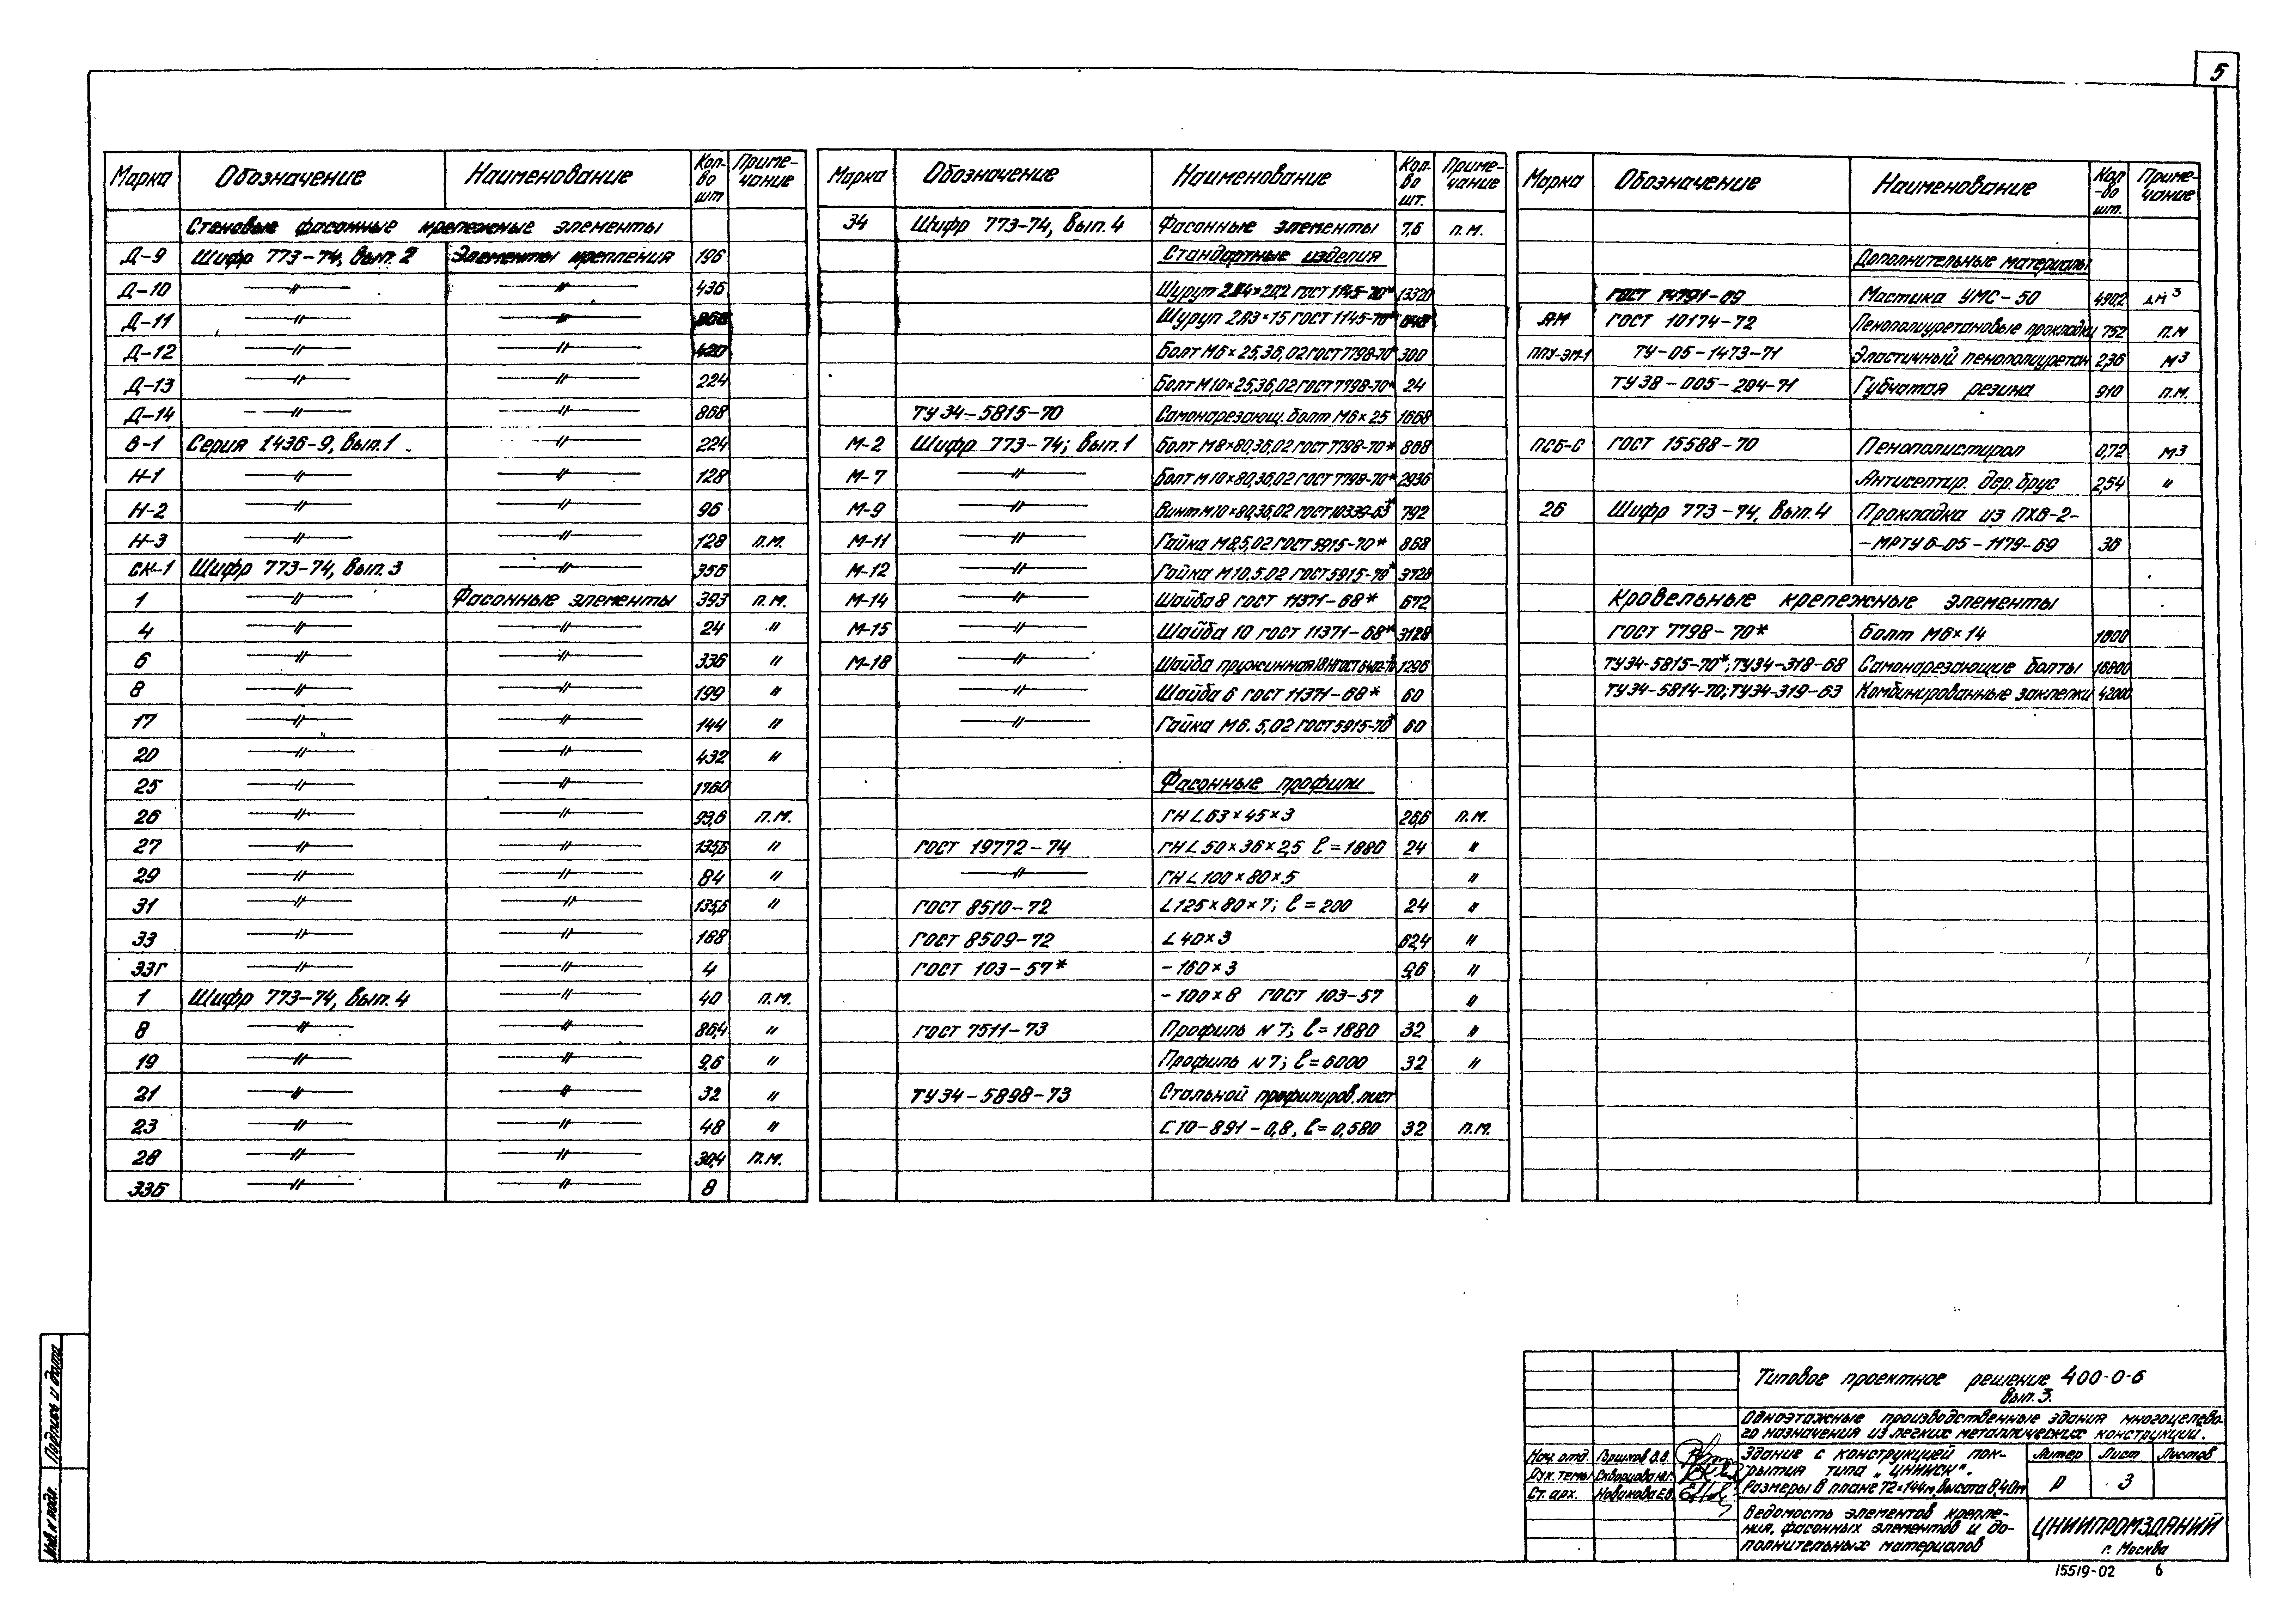 5
Марка Обозначение Наименование Кол-во шт Примечание
Стеновые фасонные крепежные элементы
Д-9 Шифр 773-74, вып. 2 Элементы крепления 196
Д-10 —〃— —〃— 436
Д-11 —〃— —〃— 868
Д-12 —〃— —〃— 420
Д-13 —〃— —〃— 224
Д-14 —〃— —〃— 868
В-1 Серия 1436-9, вып. 1 —〃— 224
Н-1 —〃— —〃— 128
Н-2 —〃— —〃— 96
Н-3 —〃— —〃— 128 п.м.
СК-1 Шифр 773-74, вып. 3 —〃— 356
1 —〃— Фасонные элементы 393 п.м.
4 —〃— —〃— 24 〃
6 —〃— —〃— 336 〃
8 —〃— —〃— 199 〃
17 —〃— —〃— 144 〃
20 —〃— —〃— 432 〃
25 —〃— —〃— 1760
26 —〃— —〃— 93,6 п.м.
27 —〃— —〃— 135,6 〃
29 —〃— —〃— 84 〃
31 —〃— —〃— 135,6 〃
33 —〃— —〃— 188
33Г —〃— —〃— 4
1 Шифр 773-74, вып. 4 —〃— 40 п.м.
8 —〃— —〃— 86,4 〃
19 —〃— —〃— 9,6 〃
21 —〃— —〃— 32 〃
23 —〃— —〃— 48 〃
28 —〃— —〃— 30,4 п.м.
33Б —〃— —〃— 8
Марка Обозначение Наименование Кол-во шт. Примечание
34 Шифр 773-74, вып. 4 Фасонные элементы 7,6 п.м.
Стандартные изделия
Шуруп ГОСТ 1145-70* 13320
Шуруп ГОСТ 1145-70*
Болт М6×25,36,02 ГОСТ 7798-70* 300
Болт М10×25,36,02 ГОСТ 7798-70* 24
ТУ 34-5815-70 Самонарезающ. болт М6×25 1668
М-2 Шифр 773-74; вып. 1 Болт М8×80,36,02 ГОСТ 7798-70* 868
М-7 —〃— Болт М10×80,36,02 ГОСТ 7798-70* 2936
М-9 —〃— Винт М10×80,36,02 ГОСТ 10339-63* 792
М-11 —〃— Гайка М8,5,02 ГОСТ 5915-70* 868
М-12 —〃— Гайка М10.5.02 ГОСТ 5915-70* 3728
М-14 —〃— Шайба 8 ГОСТ 11371-68* 672
М-15 —〃— Шайба 10 ГОСТ 11371-68* 3128
М-18 —〃— Шайба пружинная ГОСТ 6402-70 1296
—〃— Шайба 6 ГОСТ 11371-68* 60
—〃— Гайка М6. 5,02 ГОСТ 5915-70* 60
Фасонные профили
ГН ∠ 63×45×3 26,6 п.м.
ГОСТ 19772-74 ГН ∠ 50×36×2,5 ℓ=1880 24 〃
—〃— ГН ∠ 100×80×5 〃
ГОСТ 8510-72 ∠125×80×7; ℓ=200 24 〃
ГОСТ 8509-72 ∠ 40×3 62,4 〃
ГОСТ 103-57* - 160×3 9,6 〃
- 100×8 ГОСТ 103-57 〃
ГОСТ 7511-73 Профиль N 7; ℓ=1880 32 〃
Профиль N 7; ℓ=6000 32 〃
ТУ 34-5898-73 Стальной профилиров. лист
С 10-891-0,8, ℓ=0,580 32 п.м.
Марка Обозначение Наименование Кол-во шт. Примечание
Дополнительные материалы
ГОСТ 14791-69 Мастика УМС-50 490,2 дм³
ЯМ ГОСТ 10174-72 Пенополиуретановые прокладки 752 п.м
ППУ-ЭМ-1 ТУ-05-1473-71 Эластичный пенополиуретан 2,36 м³
ТУ 38-005-204-71 Губчатая резина 910 п.м.
ПСБ-С ГОСТ 15588-70 Пенополистирол 0,72 м³
Антисептир. дер. брус 2,54 〃
26 Шифр 773-74, вып. 4 Прокладка из ПХВ-2-
-МРТУ 6-05-1179-69 36
Кровельные крепежные элементы
ГОСТ 7798-70* Болт М6×14 1800
ТУ34-5815-70*; ТУ34-318-68 Самонарезающие болты 16800
ТУ34-5814-70; ТУ34-319-63 Комбинированные заклепки 42000
Подпись и дата
Инв. N подл.
Типовое проектное решение 400-0-6
вып. 3.
Одноэтажные производственные здания многоцелево-
го назначения из легких металлических конструкций.
Нач. отд. Горшков В.В.
Рук. темы Скворцова Н.Г.
Ст. арх. Новикова Е.В.
Здание с конструкцией пок-
рытия типа „ЦНИИСК".
Размеры в плане 72×144м, высота 8,40м
Литер Лист Листов
Р 3
Ведомость элементов крепле-
ния, фасонных элементов и до-
полнительных материалов
ЦНИИПРОМЗДАНИЙ
г. Москва
15519-02 6